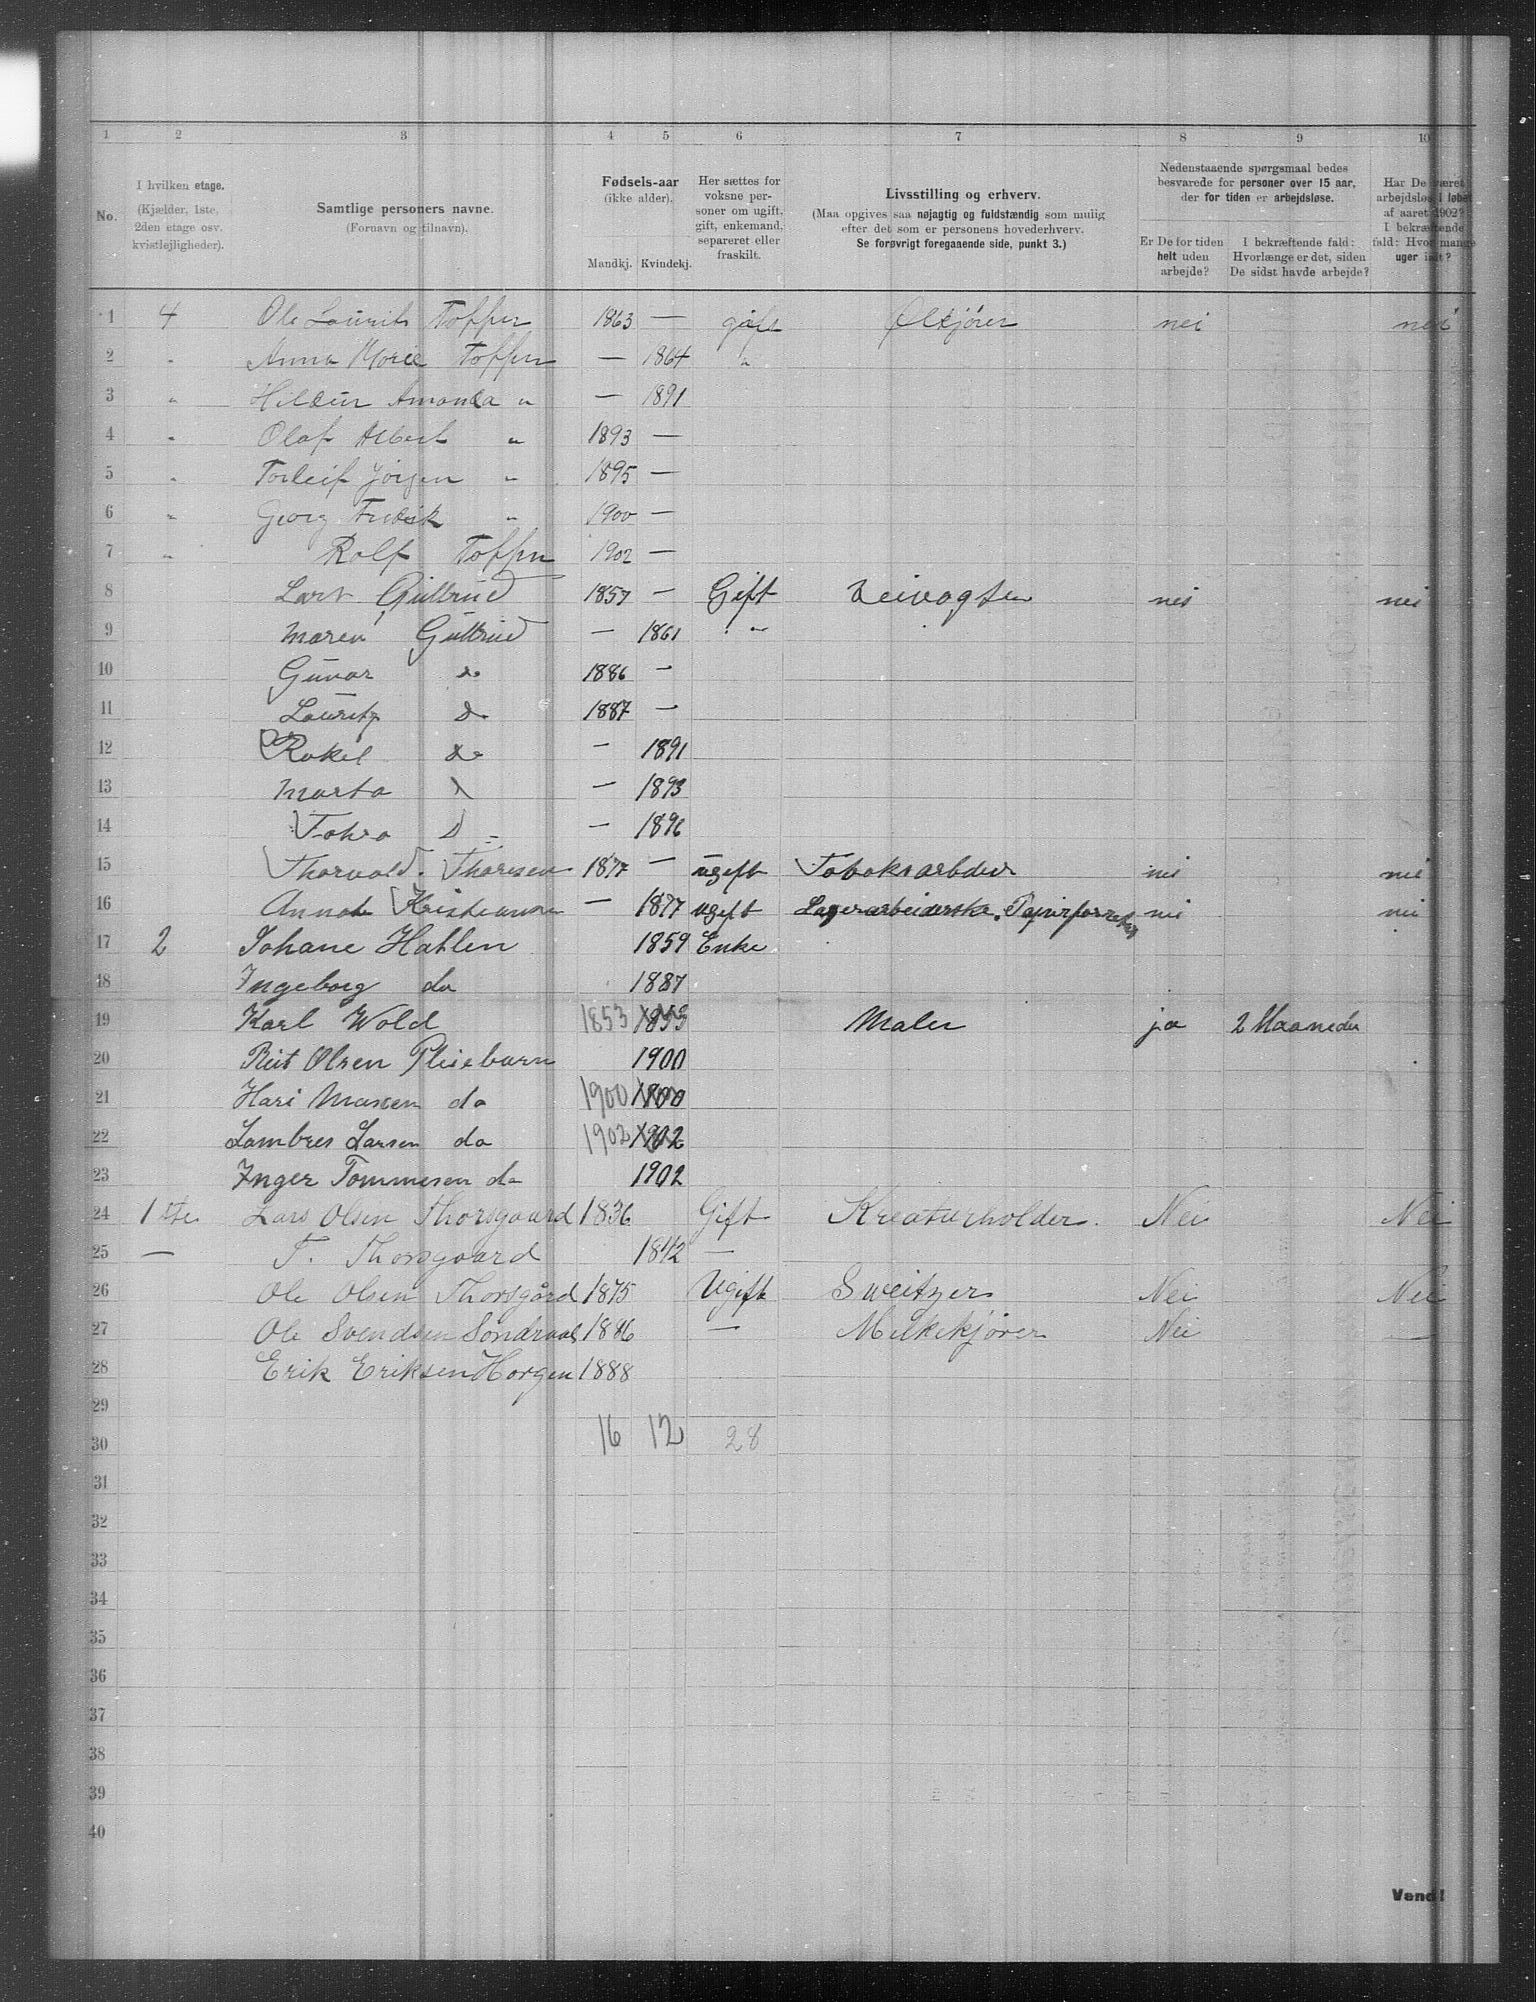 1 2 3 4 5 6 7 8 9 10
No.
I hvilken etage.
(Kjælder, 1ste,
2den etage osv.
kvistlejligheder).
Samtlige personers navne.
(Fornavn og tilnavn).
Fødsels-aar
(ikke alder).
Mandkj. Kvindekj.
Her sættes for
voksne per-
soner om ugift,
gift, enkemand,
separeret eller
fraskilt.
Livsstilling og erhverv.
(Maa opgives saa nøjagtig og fuldstændig som mulig
efter det som er personens hovederhverv.
Se forøvrigt foregaaende side, punkt 3.)
Nedenstaaende spørgsmaal bedes
besvarede for personer over 15 aar,
der for tiden er arbejdsløse.
Er De for tiden
helt uden
arbejde?
I bekræftende fald:
Hvorlænge er det, siden
De sidst havde arbejde?
Har De været
arbejdsløs i løbet
af aaret 1902?
I bekræftende
fald: Hvor mange
uger ialt?
1 4 Ole Laurits Toffen 1863 — gift Ølkjører nei nei
2 " Anna Marie Toffen — 1864 "
3 " Hildur Amanda " — 1891
4 " Olaf Albert " 1893 —
5 " Torleif Jörgen " 1895 —
6 " Georg Fredrik " 1900 —
7 " Rolf Toffen 1902 —
8 Lars Gulbrud 1857 — Gift Veivogter nei nei
9 Maren Gulbrud — 1861 "
10 Gunar do 1886 —
11 Lauritz do 1887 —
12 Rakel do — 1891
13 Marta — 1893
14 D — 1896
15 Thorvald Thoresen 1877 — ugift Toboksarbeider nei nei
16 Anna Kristiansen — 1877 ugift Lagerarbeiderske, nei nei
17 2 Johane Hatlen 1859 Enke
18 Ingeborg do 1887
19 Karl Wold 1853 1853 Maler ja 2 Maaneder
20 Olsen Pleiebarn 1900
21 Hari do 1900 1900
22 Lambres Larsen do 1902 1902
23 Inger Tommesen do 1902
24 1ste Lars Olsen Thorsgaard 1836 Gift Kreaturholder. Nei Nei
25 — T. Thorsgaard 1842 —
26 Ole Olsen Thorsgård 1875 Ugift Sweitzer Nei Nei
27 Ole Svendsen Söndraal 1886 — Melkekjører Nei —
28 Erik Eriksen Horgen 1888
29
30 16 12 28
31
32
33
34
35
36
37
38
39
40
Vend!